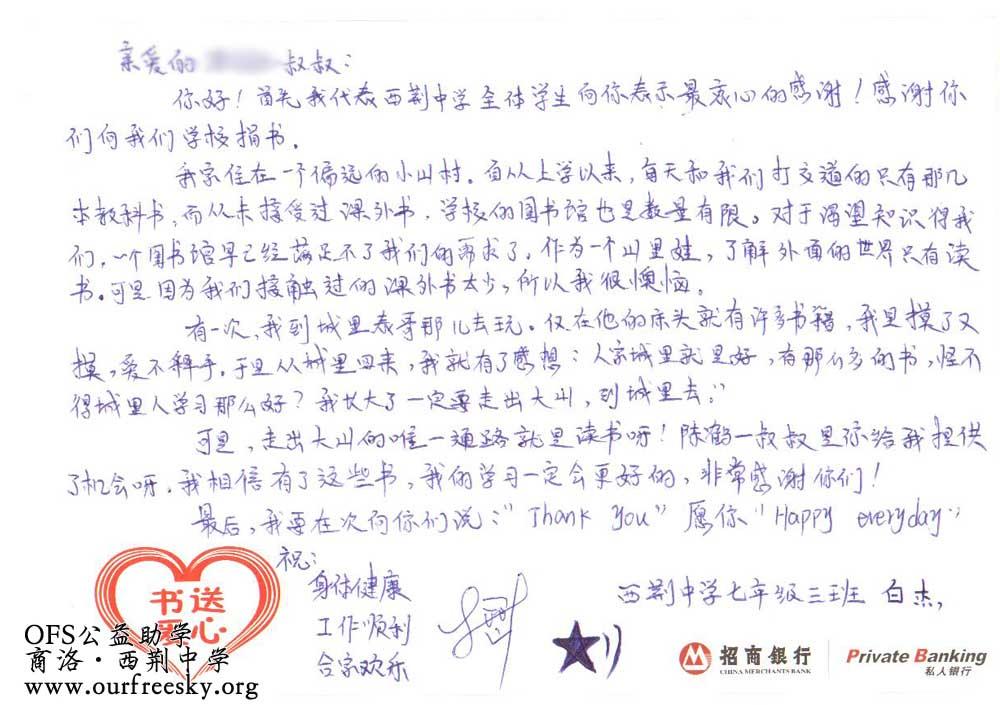 亲爱的 叔叔：
你好！首先我代表西荆中学全体学生向你表示最衷心的感谢！感谢你
们向我们学校捐书。
我家住在一个偏远的小山村。自从上学以来，每天和我们打交道的只有那几
本教科书，而从未接受过课外书．学校的图书馆也是数量有限。对于渴望知识得我
们，一个图书馆早已经满足不了我们的需求了，作为一个山里娃，了解外面的世界只有读
书。可是因为我们接触过的课外书太少，所以我很懊恼。
有一次，我到城里表哥那儿去玩．仅在他的床头就有许多书籍，我是摸了又
摸，爱不释手．于是从城里回来，我就有了感想：人家城里就是好，有那么多的书，怪不
得城里人学习那么好？我长大了一定要走出大山，到城里去！"
可是，走出大山的唯一通路就是读书呀！陈鹤一叔叔是你给我提供
了机会呀．我相信有了这些书，我的学习一定会更好的，非常感谢你们！
最后，我要在次向你们说："Thank You"愿你"Happy everyday"
祝：
身体健康
工作顺利
合家欢乐
西荆中学七年级三班 白杰，
书送
爱心
OFS公益助学
商洛·西荆中学
www.ourfreesky.org
招商银行
CHINA MERCHANTS BANK
Private Banking
私人银行